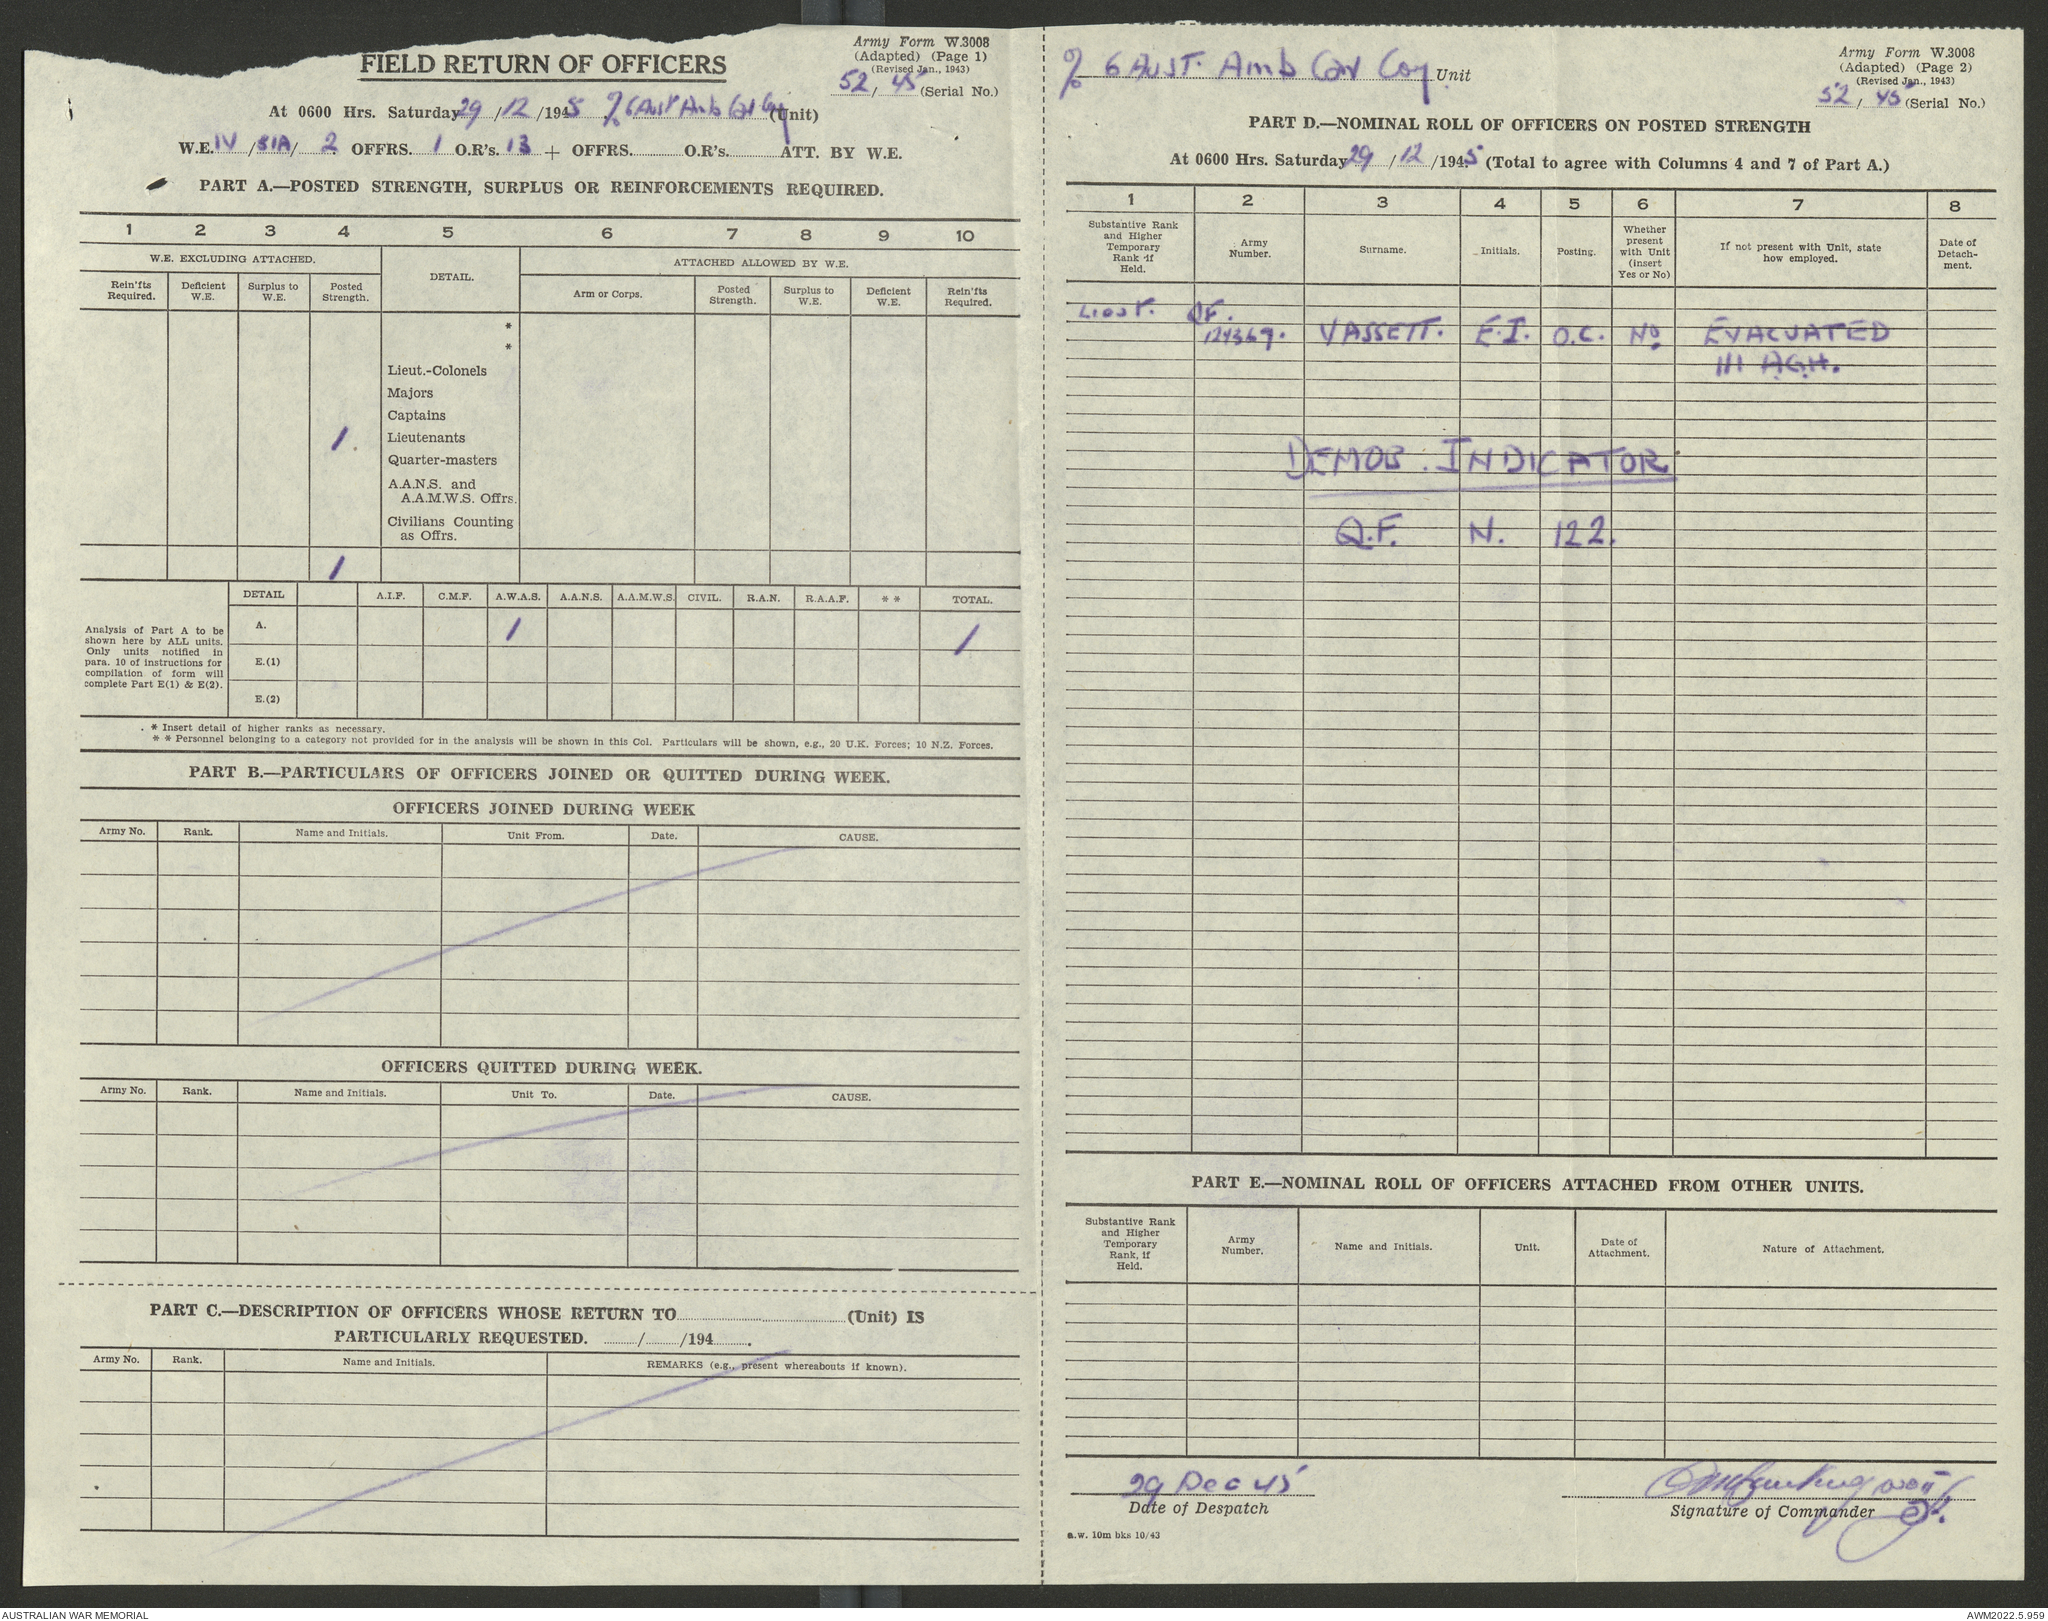 FIELD RETURN OF OFFICERS
Army Form W.3008
(Adapted) (Page 1)
(Revised Jan., 1943)
52/ 45 (Serial No.)
At 0600 Hrs. Saturday 29/12/1945 % 6 Aust Amb Car Coy (Unit)
W.E. IV/51A/ 2 OFFRS. 1 O.R's. 13 + OFFRS. O.R's. ATT. BY W.E.
PART A.—POSTED STRENGTH, SURPLUS OR REINFORCEMENTS REQUIRED.
1 2 3 4 5 6 7 8 9 10
W.E. EXCLUDING ATTACHED. DETAIL. ATTACHED ALLOWED BY W.E.
Rein'fts Required. Deficient W.E. Surplus to W.E. Posted Strength. Arm or Corps. Posted Strength. Surplus to W.E. Deficient W.E. Rein'fts Required.
*
*
Lieut.-Colonels
Majors
Captains
1. Lieutenants
Quarter-masters
A.A.N.S. and
A.A.M.W.S. Offrs.
Civilians Counting
as Offrs.
1
DETAIL A.I.F. C.M.F. A.W.A.S. A.A.N.S. A.A.M.W.S. CIVIL. R.A.N. R.A.A.F. * * TOTAL.
Analysis of Part A to be
shown here by ALL units.
Only units notified in
para. 10 of instructions for
compilation of form will
complete Part E(1) & E(2).
A. 1 1
E.(1)
E.(2)
* Insert detail of higher ranks as necessary.
* * Personnel belonging to a category not provided for in the analysis will be shown in this Col. Particulars will be shown, e.g., 20 U.K. Forces; 10 N.Z. Forces.
PART B.—PARTICULARS OF OFFICERS JOINED OR QUITTED DURING WEEK.
OFFICERS JOINED DURING WEEK
Army No. Rank. Name and Initials. Unit From. Date. CAUSE.
OFFICERS QUITTED DURING WEEK.
Army No. Rank. Name and Initials. Unit To. Date. CAUSE.
PART C.—DESCRIPTION OF OFFICERS WHOSE RETURN TO (Unit) IS
PARTICULARLY REQUESTED. / /194 .
Army No. Rank. Name and Initials. REMARKS (e.g., present whereabouts if known).
% 6 AUST. Amb Car Coy. Unit
Army Form W.3008
(Adapted) (Page 2)
(Revised Jan., 1943)
52/ 45 (Serial No.)
PART D.—NOMINAL ROLL OF OFFICERS ON POSTED STRENGTH
At 0600 Hrs. Saturday 29/12/1945 (Total to agree with Columns 4 and 7 of Part A.)
1 2 3 4 5 6 7 8
Substantive Rank and Higher Temporary Rank if Held. Army Number. Surname. Initials. Posting. Whether present with Unit (insert Yes or No) If not present with Unit, state how employed. Date of Detachment.
Lieut. QF.
124367. VASSETT. E.I. O.C. No. EVACUATED
111 A.G.H.
DEMOB. INDICATOR
Q.F. N. 122.
PART E.—NOMINAL ROLL OF OFFICERS ATTACHED FROM OTHER UNITS.
Substantive Rank and Higher Temporary Rank, if Held. Army Number. Name and Initials. Unit. Date of Attachment. Nature of Attachment.
29 Dec 45
Date of Despatch
Signature of Commander
a.w. 10m bks 10/43
AUSTRALIAN WAR MEMORIAL
AWM2022.5.959